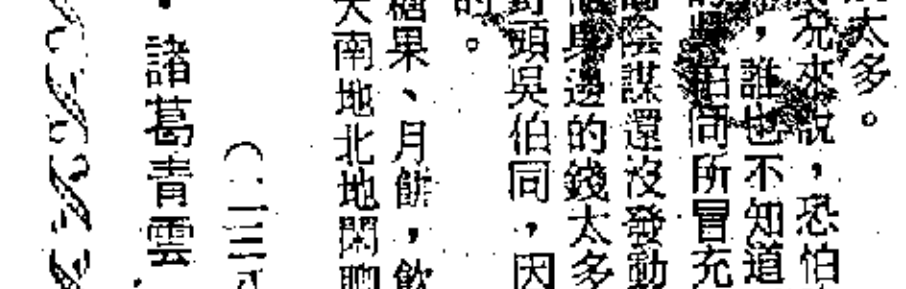 太多。
來說，恐怕
，誰也不知道
伯同所冒充
陰謀還沒發動
邊的錢太多
對頭吳伯同，因
的。
糖果、月餅，飲
大南地北地閑聊
（二三
諸葛青雲